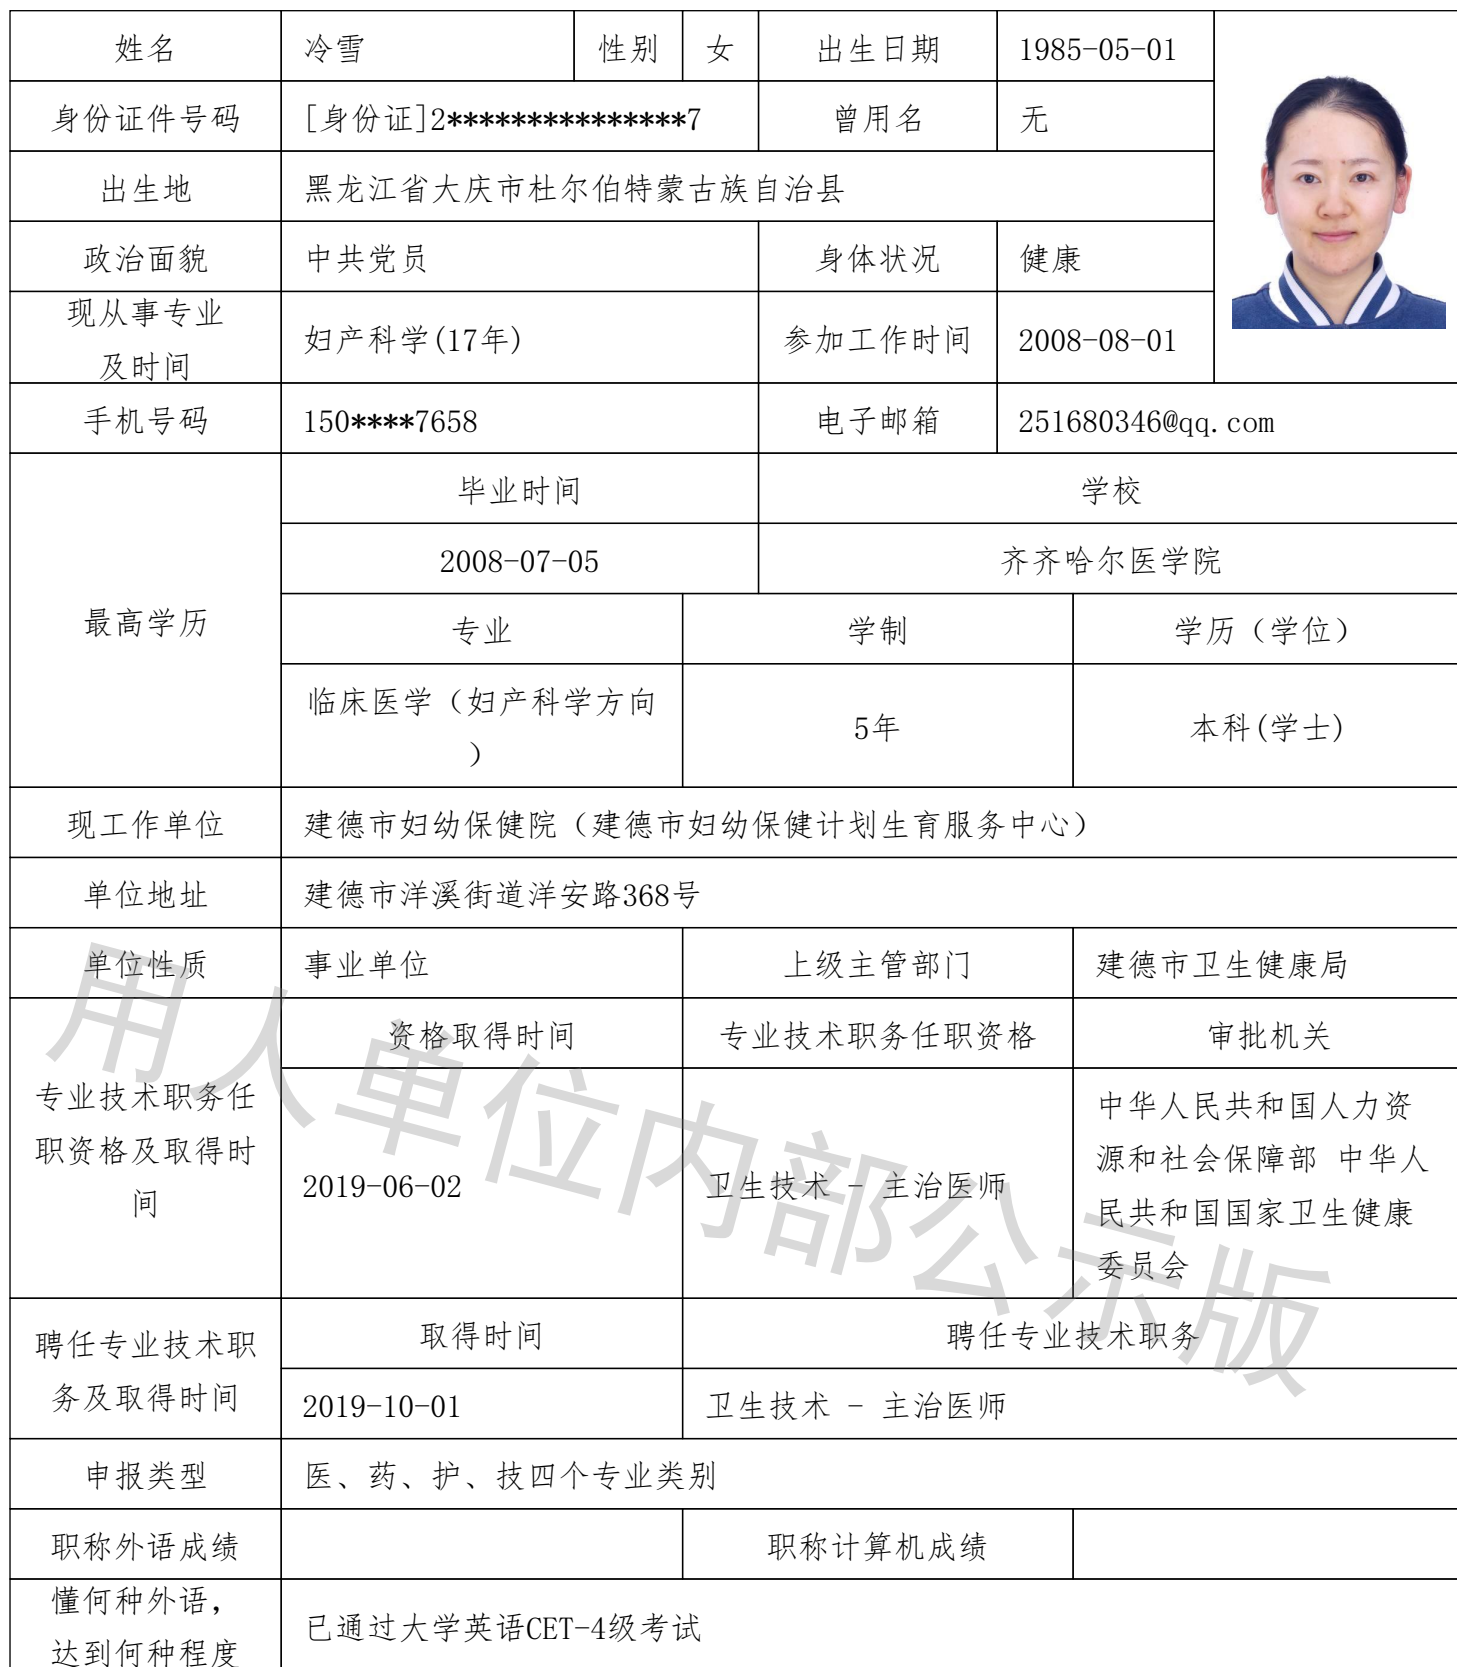 姓名 冷雪 性别 女 出生日期 1985-05-01
身份证件号码 [身份证]2***************7 曾用名 无
出生地 黑龙江省大庆市杜尔伯特蒙古族自治县
政治面貌 中共党员 身体状况 健康
现从事专业
及时间
妇产科学(17年) 参加工作时间 2008-08-01
手机号码 150****7658 电子邮箱 251680346@qq.com
最高学历
毕业时间 学校
2008-07-05 齐齐哈尔医学院
专业 学制 学历（学位）
临床医学（妇产科学方向
）
5年 本科(学士)
现工作单位 建德市妇幼保健院（建德市妇幼保健计划生育服务中心）
单位地址 建德市洋溪街道洋安路368号
单位性质 事业单位 上级主管部门 建德市卫生健康局
专业技术职务任
职资格及取得时
间
资格取得时间 专业技术职务任职资格 审批机关
2019-06-02 卫生技术 - 主治医师
中华人民共和国人力资
源和社会保障部 中华人
民共和国国家卫生健康
委员会
聘任专业技术职
务及取得时间
取得时间 聘任专业技术职务
2019-10-01 卫生技术 - 主治医师
申报类型 医、药、护、技四个专业类别
职称外语成绩 职称计算机成绩
懂何种外语，
达到何种程度
已通过大学英语CET-4级考试
用人单位内部公示版